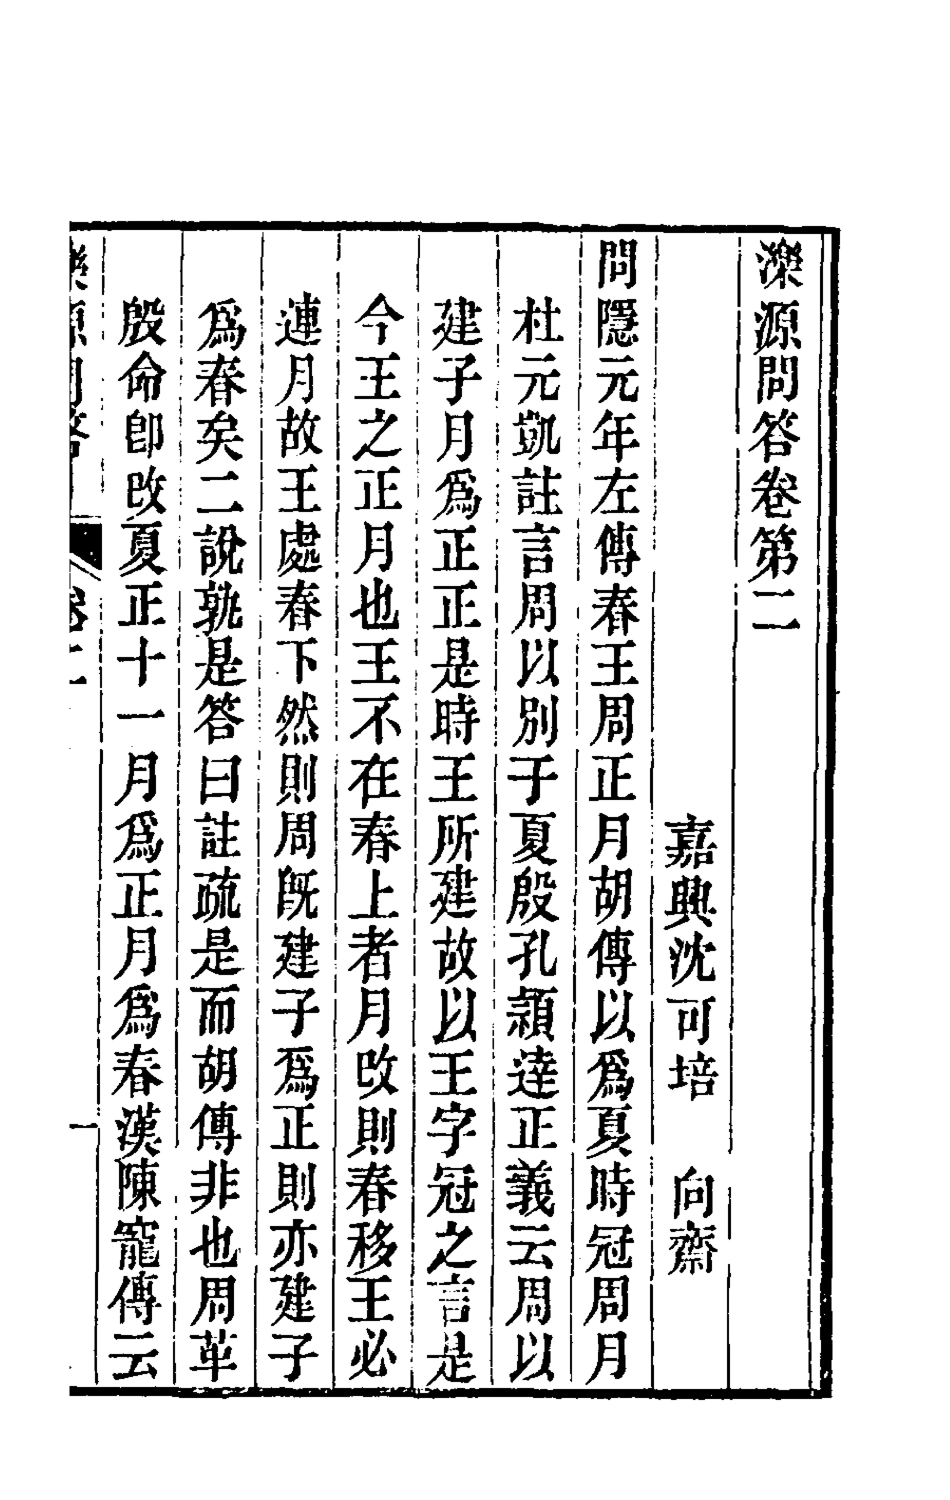 濼源問答卷第二
嘉興沈可培　向齋
問隱元年左傳春王周正月胡傳以爲夏時冠周月
杜元凱註言周以別于夏殷孔穎達正義云周以
建子月爲正正是時王所建故以王字冠之言是
今王之正月也王不在春上者月改則春移王必
連月故王處春下然則周旣建子爲正則亦建子
爲春矣二說孰是答曰註疏是而胡傳非也周革
殷命卽改夏正十一月爲正月爲春漢陳寵傳云
濼源問答　卷二　一